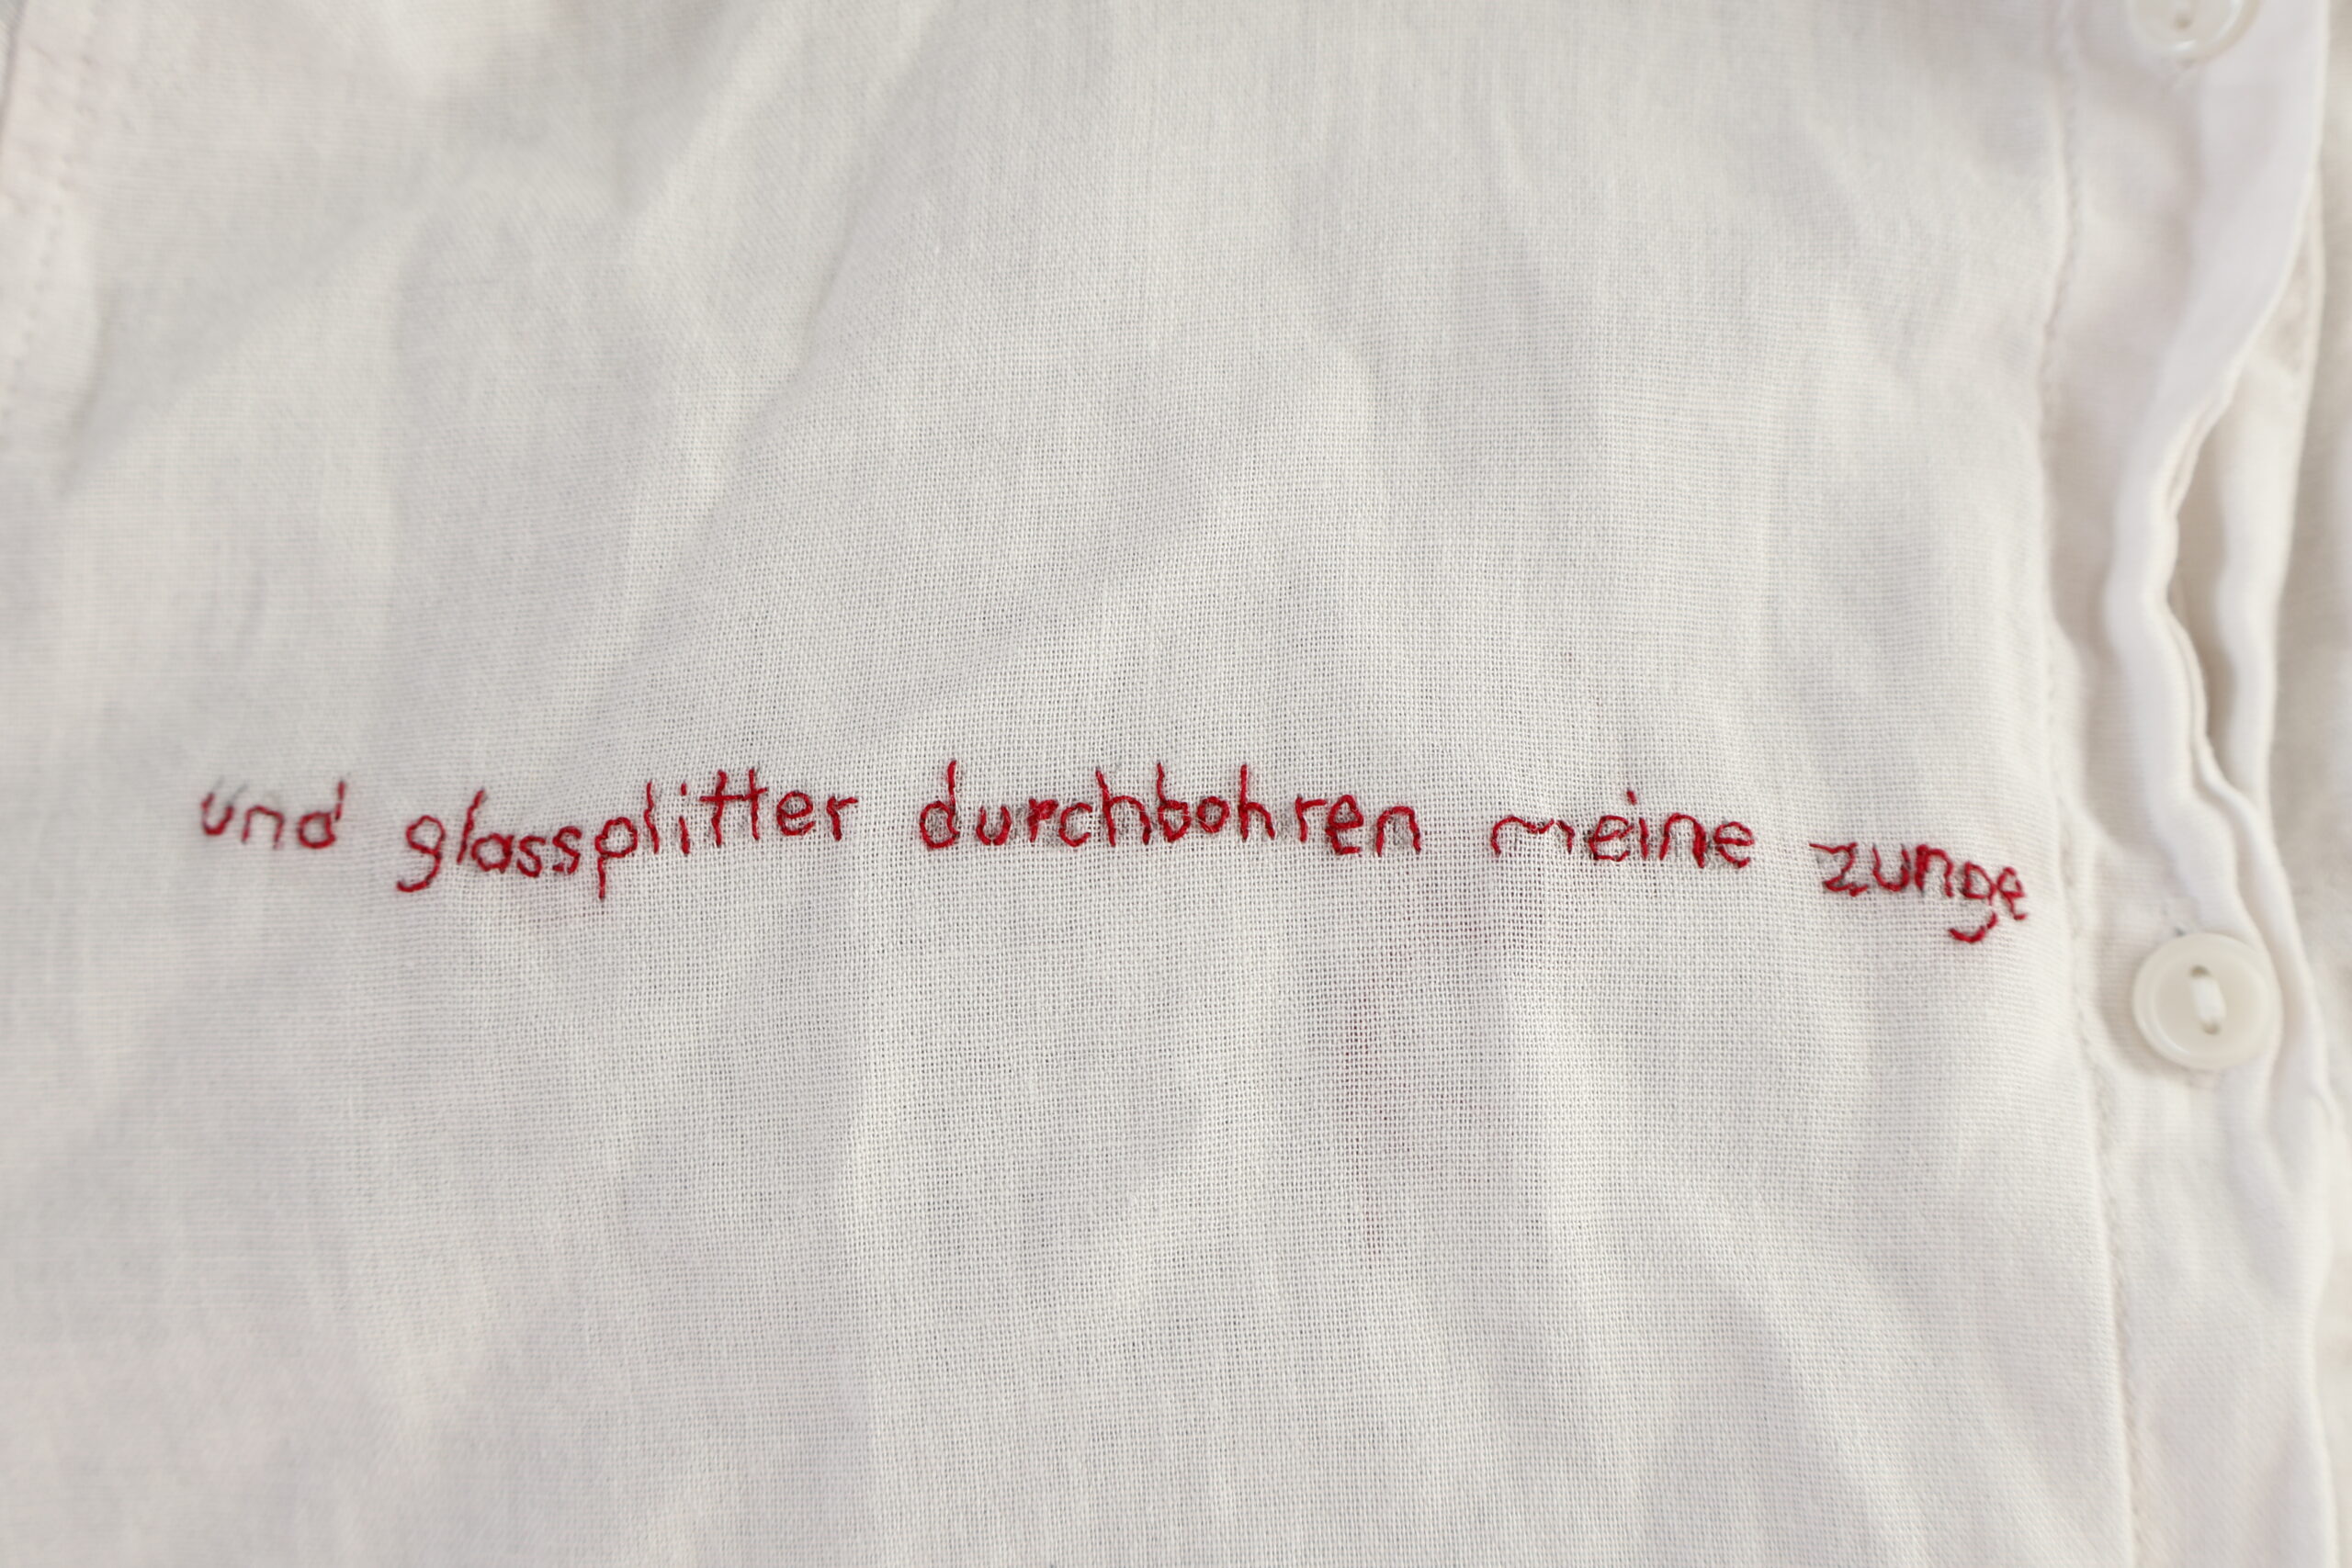 und glassplitter durchbohren meine zunge